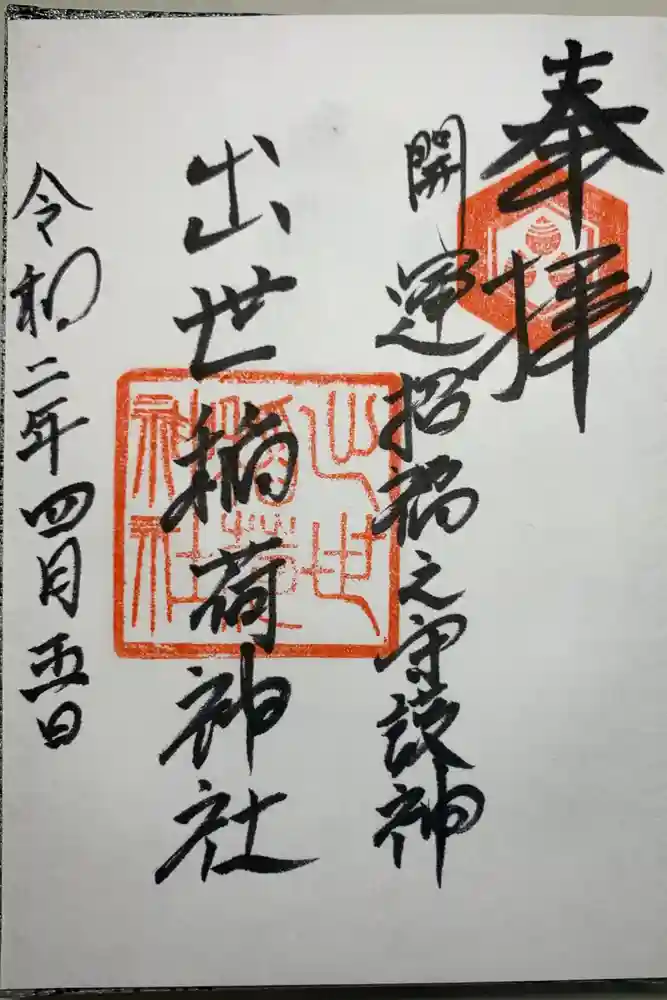 奉拝
開運招福之守護神
出世稲荷神社
令和二年四月五日
出世稲荷神社